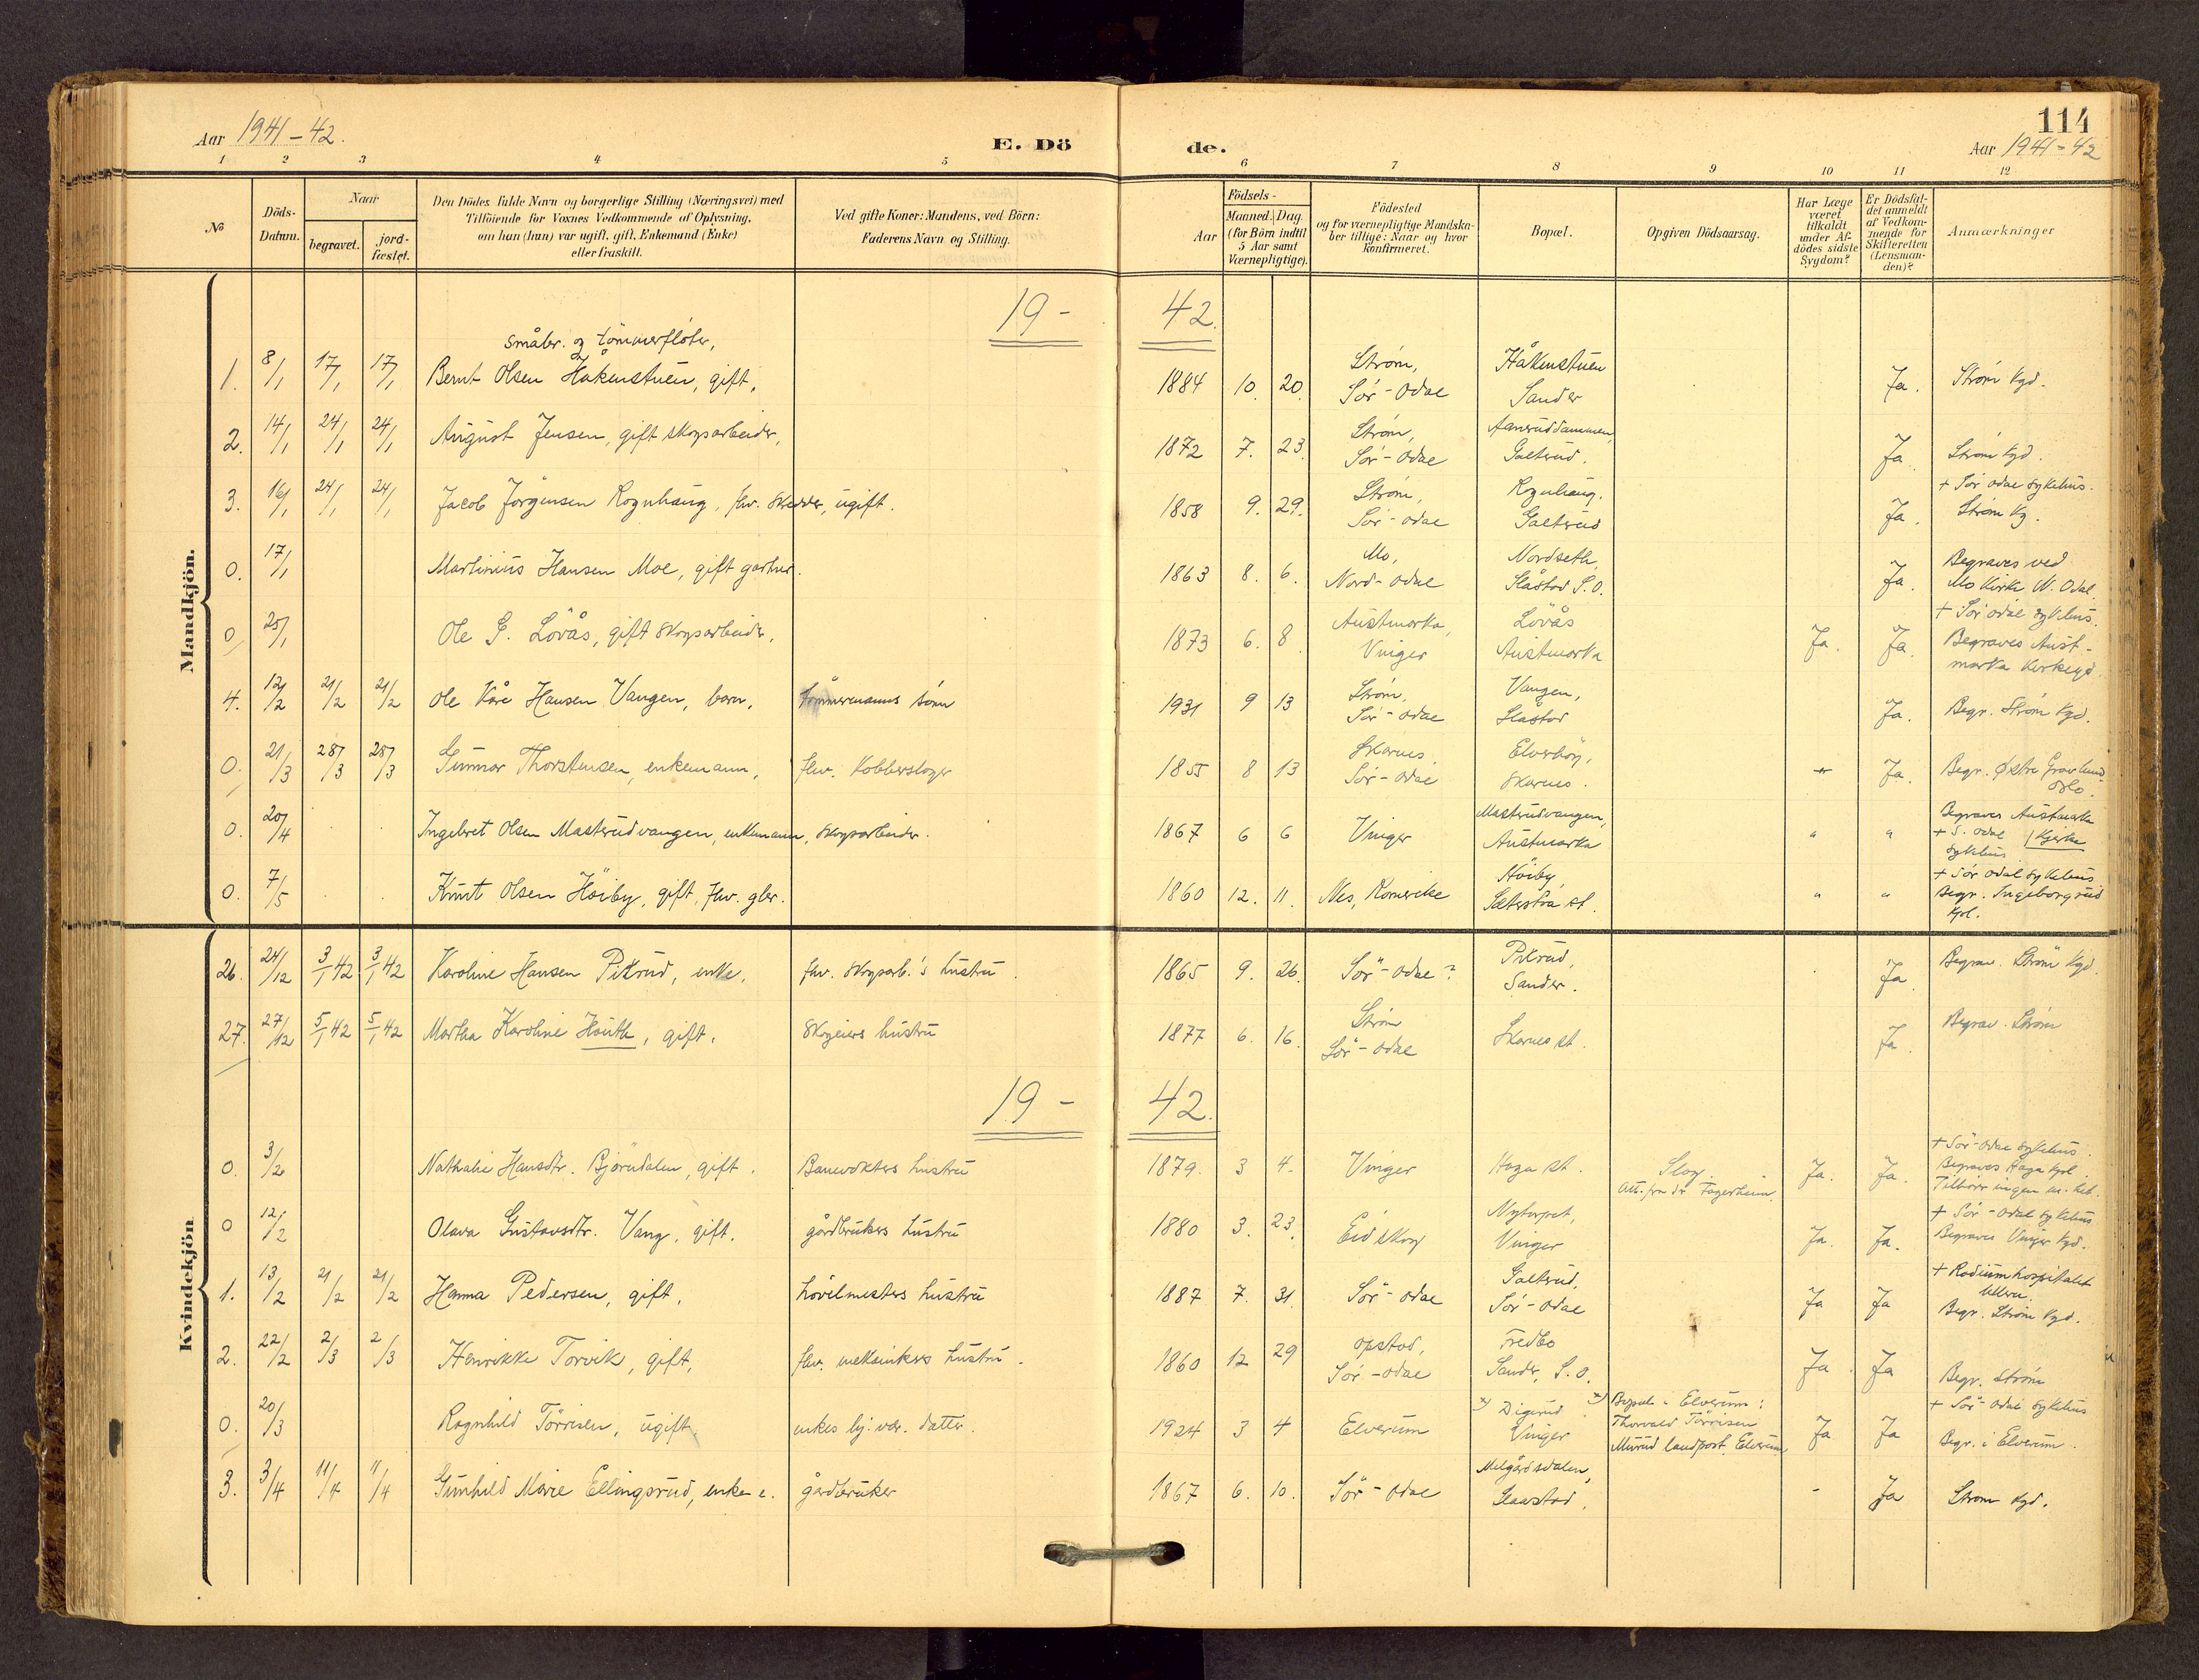 Aar 1941-42.
E. Dö
de.
114
Aar 1941-42
1 2 3 4 5 6 7 8 9 10 11 12
№
Döds-
Datum.
Naar
begravet.
jord-
fæstet.
Den Dödes fulde Navn og borgerlige Stilling (Næringsvei) med
Tilföiende for Voxnes Vedkommende af Oplysning,
om han (hun) var ugift, gift, Enkemand (Enke)
eller fraskilt.
Ved gifte Koner: Mandens, ved Börn:
Faderens Navn og Stilling.
Aar
Födsels-
Maaned. Dag.
(for Börn indtil
5 Aar samt
Værnepligtige).
Födested
og for værnepligtige Mandska-
ber tillige: Naar og hvor
konfirmeret.
Bopæl.
Opgiven Dödsaarsag.
Har Læge
været
tilkaldt
under Af-
dödes sidste
Sygdom?
Er Dödsfal-
det anmeldt
af Vedkom-
mende for
Skifteretten
(Lensman-
den)?
Anmærkninger
Mandkjön.
19- 42.
småbr. og tömmerfløter,
1. 8/1 17/1 17/1 Bernt Olsen Håkenstuen, gift, 1884 10. 20. Strøm, Sör-Odal Håkenstuen Sander Ja. Strøm Kgd.
2. 14/1 24/1 24/1 August Jensen, gift skogsarbeider, 1872 7. 23. Strøm, Sör-Odal Aaneruddammen, Galterud. Ja. Strøm Kgd.
3. 16/1 24/1 24/1 Jacob Jörgensen Rognhaug, fhv. skredder, ugift. 1858 9. 29. Strøm, Sör-Odal Rognhaug. Galterud Ja. + Sör Odal sykehus. Strøm Kg.
0. 17/1 Martinius Hansen Moe, gift gartner. 1863 8. 6. Mo, Nord-Odal Nordseth, Slåstad S.O. Ja. Begraves ved Mo Kirke N. Odal.
0 25/1 Ole G. Lövås, gift skogsarbeider. 1873 6. 8 Austmarka, Vinger Lövås Austmarka Ja. Ja. + Sör Odal sykehus. Begraves Aust-
marka Kirkegd.
4. 12/2 21/2 21/2 Ole Kåre Hansen Vangen, barn, tömmermanns sönn 1931 9 13 Strøm, Sör-Odal Vangen, Slåstad Ja. Begr. Strøm Kgd.
0. 21/3 28/3 28/3 Gunnar Thorstensen, enkemann, fhv. Kobberslager 1855 8 13 Skarnes, Sör-Odal Elverhöy, Skarnes. Ja. Begr. Østre Gravlund Oslo.
0. 20/4 Ingebret Olsen Masterudvangen, enkemann, skogsarbeider. 1867 6 6 Vinger Masterudvangen, Austmarka " " Begraves Austmarka Kjirke + S. Odal sykehus
0. 7/5 Knut Olsen Höiby, gift, fhv. gbr. 1860 12. 11. Nes, Romerike Höiby, Sæterstøa st. " " + Sör Odal sykehus Begr. Ingeborgrud Kpl.
Kvindekjön
26. 24/12 3/1 42 3/1 42 Karoline Hansen Pikrud, enke, fhv. skogsarb.'s hustru. 1865 9. 26. Sör-Odal? Pikrud, Sander. Ja. Begrav. Strøm Kgd.
27. 27/12 5/1 42 5/1 42 Martha Karoline Hauth, gift, skogeiers hustru 1877 6. 16. Strøm Sör-Odal Skarnes st. Ja. Begrav. Strøm
19- 42.
0. 3/2 Nathalie Hansdtr. Björndalen, gift. Banevokters hustru 1879. 3 4. Vinger Haga st. Slag. Att. fra dr. Fagerheim. Ja. Ja. + Sör-Odal sykehus. Begraves Haga Kpl.
0 12/2 Olava Gustavsdtr. Vang, gift. gårdbrukers hustru 1880 3. 23. Eidskog Nytorpet, Vinger Ja. Ja. + Sör-Odal sykehus Begraves Vinger Kgd.
1. 13/2 21/2 21/2 Hanna Pedersen, gift. hövelmesters hustru 1887 7. 31. Sör-Odal Galterud, Sör-Odal Ja Ja + Radiumhospitalet Ullern. Begr. Strøm Kgd.
2. 22/2 2/3 2/3 Henrikke Torvik, gift, fhv. mekanikers hustru. 1860 12 29 Opstad, Sör-Odal Fredbo Sander, S.O. Ja. Ja Begr. Strøm
0. 20/3 Ragnhild Törrisen, ugift, enkes hj. vær. datter. 1924 3 4 Elverum x) Digerud Vinger x) Bopæl i Elverum: Thorvald Törrisen Murud landpost, Elverum Ja Ja + Sör-Odal sykehus Begr. i Elverum.
3. 3/4 11/4 11/4 Gunhild Marie Ellingsrud, enke e. gårdbruker 1867 6. 10. Sör-Odal Melgårdsdalen, Slaastad. - Ja Strøm Kgd.